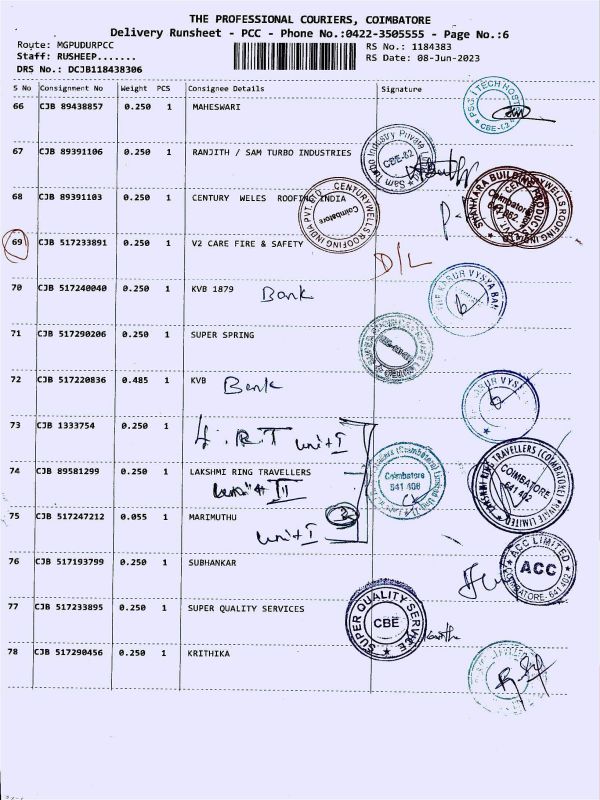 THE PROFESSIONAL COURIERS, COIMBATORE
Delivery Runsheet - PCC - Phone No.:0422-3505555 - Page No.:6
Route: MGPUDURPCC RS No.: 1184383
Staff: RUSHEEP....... RS Date: 08-Jun-2023
DRS No.: DCJB118438306
S No Consignment No Weight PCS Consignee Details Signature
66 CJB 89438857 0.250 1 MAHESWARI
67 CJB 89391106 0.250 1 RANJITH / SAM TURBO INDUSTRIES
68 CJB 89391103 0.250 1 CENTURY WELES ROOFING INDIA
69 CJB 517233891 0.250 1 V2 CARE FIRE & SAFETY D/L
70 CJB 517240040 0.250 1 KVB 1879 Bank
71 CJB 517290206 0.250 1 SUPER SPRING
72 CJB 517220836 0.485 1 KVB Bank
73 CJB 1333754 0.250 1 L.R.T unit I
74 CJB 89581299 0.250 1 LAKSHMI RING TRAVELLERS
II
75 CJB 517247212 0.055 1 MARIMUTHU 2
unit I
76 CJB 517193799 0.250 1 SUBHANKAR
77 CJB 517233895 0.250 1 SUPER QUALITY SERVICES
78 CJB 517290456 0.250 1 KRITHIKA
CBE-62
Sam Turbo Industry Private
CENTURYWELLS ROOFING INDIA PVT. LTD.
Coimbatore
SHANKARA BUILDING PRODUCTS
THE KARUR VYSYA BANK
Coimbatore
641 406
RING TRAVELLERS (COIMBATORE) PRIVATE LIMITED
COIMBATORE
641 402
ACC LIMITED
ACC
COIMBATORE. 641 402
SUPER QUALITY SERVICE
CBE